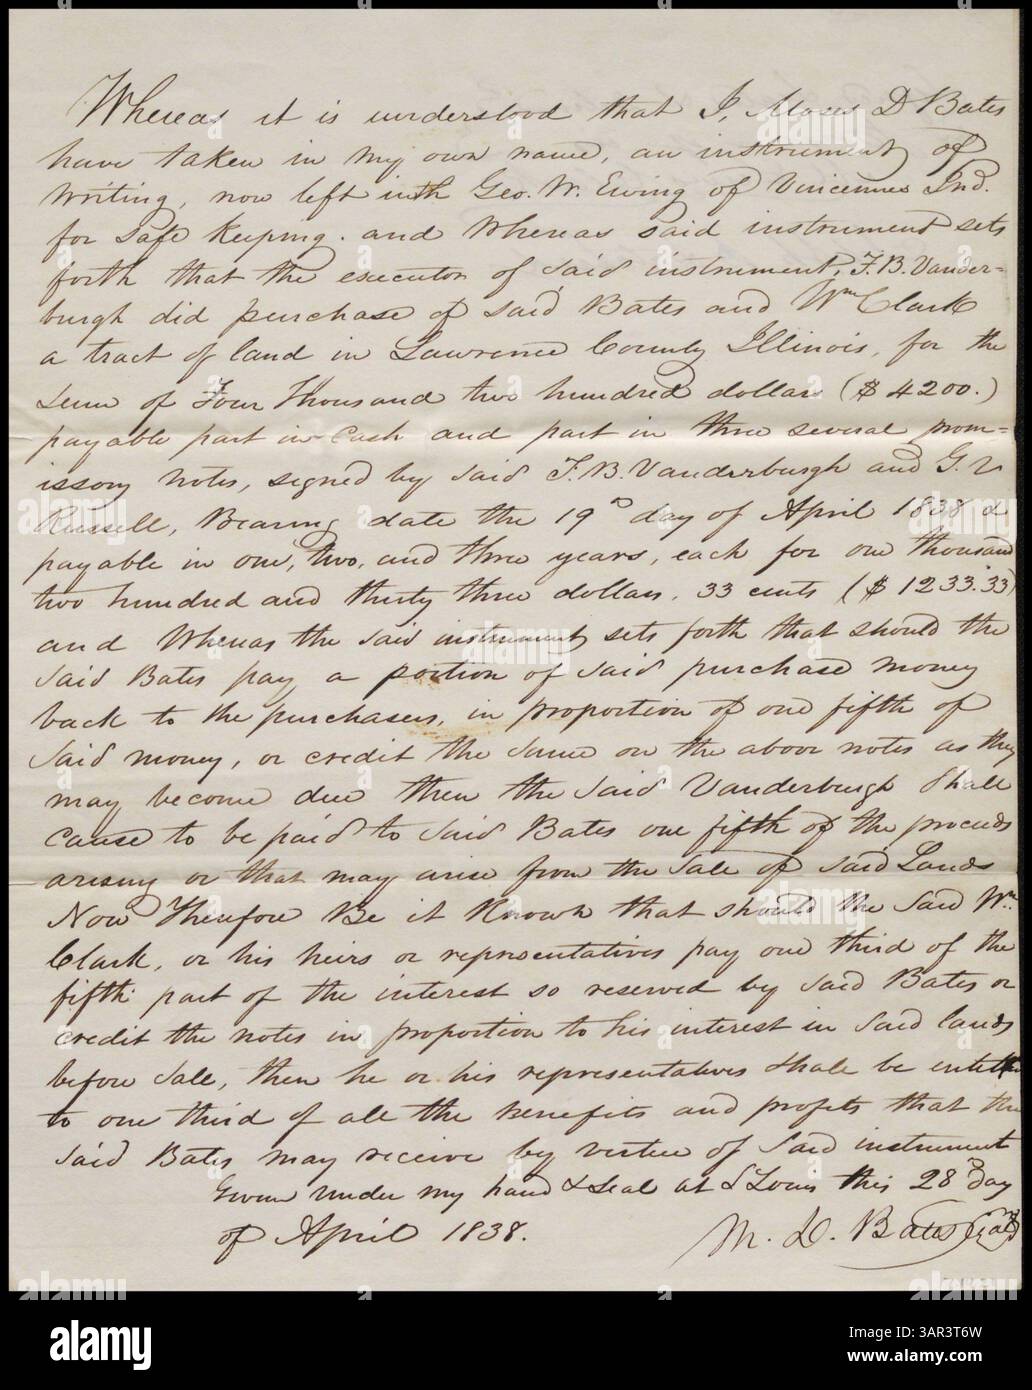 Whereas it is understood that I, Moses D Bates
have taken in my own name, an instrument of
writing, now left with Geo. W. Ewing of Vincennes Ind.
for safe keeping. and Whereas said instrument sets
forth that the executor of said instrument, F. B. Vander-
burgh did purchase of said Bates and Wm Clark
a tract of land in Lawrence County Illinois, for the
sum of Four Thousand two hundred dollars ($4200.)
payable part in Cash and part in three several prom=
issory notes, signed by said F. B. Vanderburgh and G.
Russell, Bearing date the 19th day of April 1838 &
payable in one, two, and three years, each for one thousand
two hundred and thirty three dollars. 33 cents ($1233.33)
and Whereas the said instrument sets forth that should the
said Bates pay a portion of said purchase money
back to the purchasers, in proportion of one fifth of
said money, or credit the same on the above notes as they
may become due then the said Vanderburgh shall
cause to be paid to said Bates one fifth of the proceeds
arising or that may arise from the sale of said Lands
Now Therefore Be it Known that should the said Wm
Clark, or his heirs or representatives pay one third of the
fifth part of the interest so reserved by said Bates or
credit the notes in proportion to his interest in said lands
before sale, then he or his representatives shall be
to one third of all the benefits and profits that the
said Bates may receive by virtue of said instrument
Given under my hand & seal at St Louis this 28th day
of April 1838.
M. D. Bates Seal
alamy
Image ID: 3AR3T6W
www.alamy.com